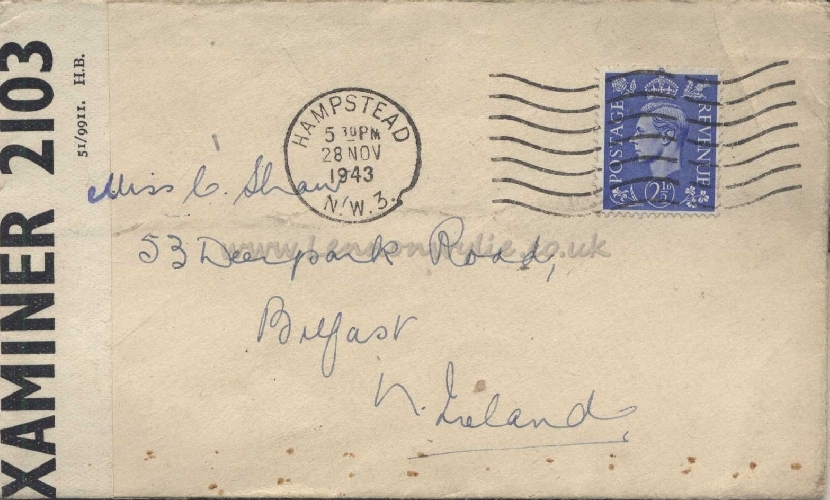 XAMINER 2103
51/9911. H.B.
HAMPSTEAD
5 30 PM
28 NOV
1943
N.W.3.
POSTAGE REVENUE
2½D
Miss C. Shaw
53 Deerpark Road,
Belfast
N. Ireland,